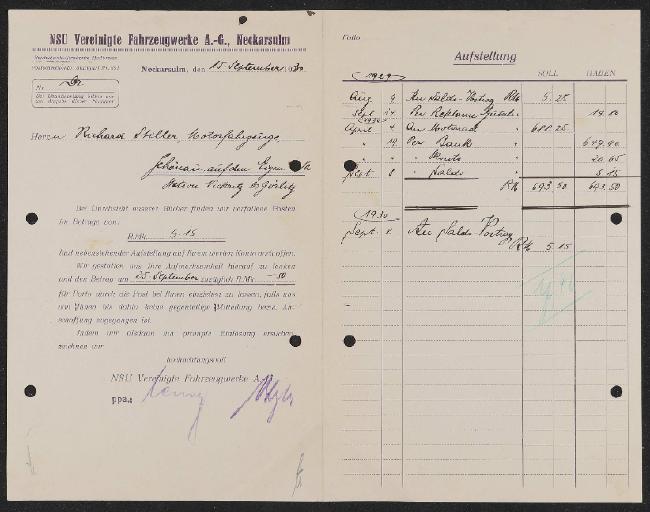 NSU Vereinigte Fahrzeugwerke A.-G., Neckarsulm
Neckarsulm, den 15. September 1930
Nr.
Bei Beantwortung bitten wir
um Angabe dieser Nummer
Herrn Richard Stiller, Motorfahrzeuge,
Schönau auf dem Eigen
Station Görlitz
Bei Durchsicht unserer Bücher finden wir verfallene Posten
im Betrage von:
RMk. 5.15
laut nebenstehender Aufstellung auf Ihrem werten Konto noch offen.
Wir gestatten uns Ihre Aufmerksamkeit hierauf zu lenken
und den Betrag am 25. September zuzüglich RMk -.50
für Porto durch die Post bei Ihnen einziehen zu lassen, falls uns
von Ihnen bis dahin keine gegenteilige Mitteilung bezw. An-
schaffung zugegangen ist.
Indem wir diesfalls um prompte Einlösung ersuchen,
zeichnen wir
hochachtungsvoll
NSU Vereinigte Fahrzeugwerke A.-G.
ppa.:
Folio
Aufstellung
SOLL HABEN
1929
Aug. 9 An Saldo-Vortrag RMk 5.25
Sept. 24 Per Reklame
1930
April 4 An Motorrad " 688.25
" 19 Per Bank
" " 20.65
Sept. 8 " Saldo 5.15
RMk 693.50 693.50
1930
Sept. 8 An Saldo Vortrag
RMk 5.15